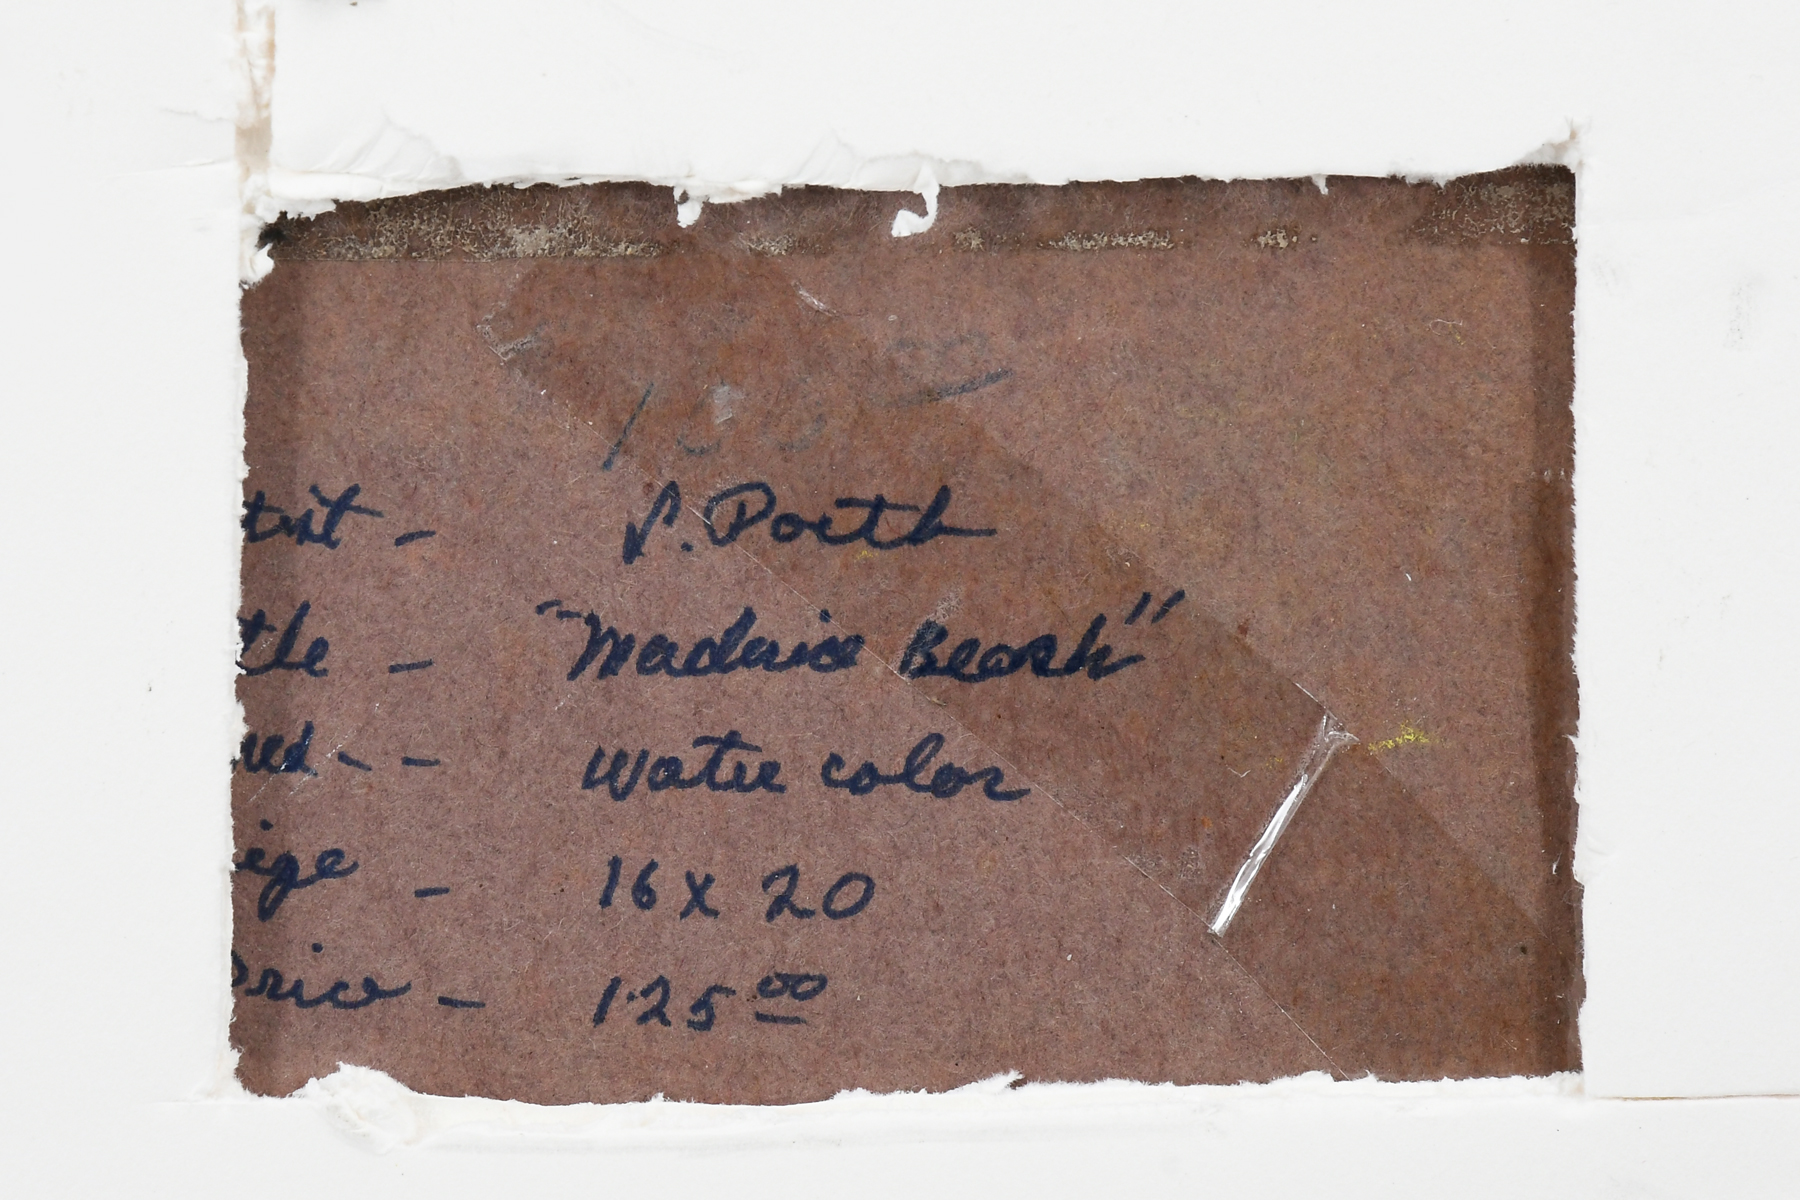 100 00
tist - S. Poeth
tle - "Maderia Beach"
ued - - Water color
ize - 16 x 20
price - 125 00